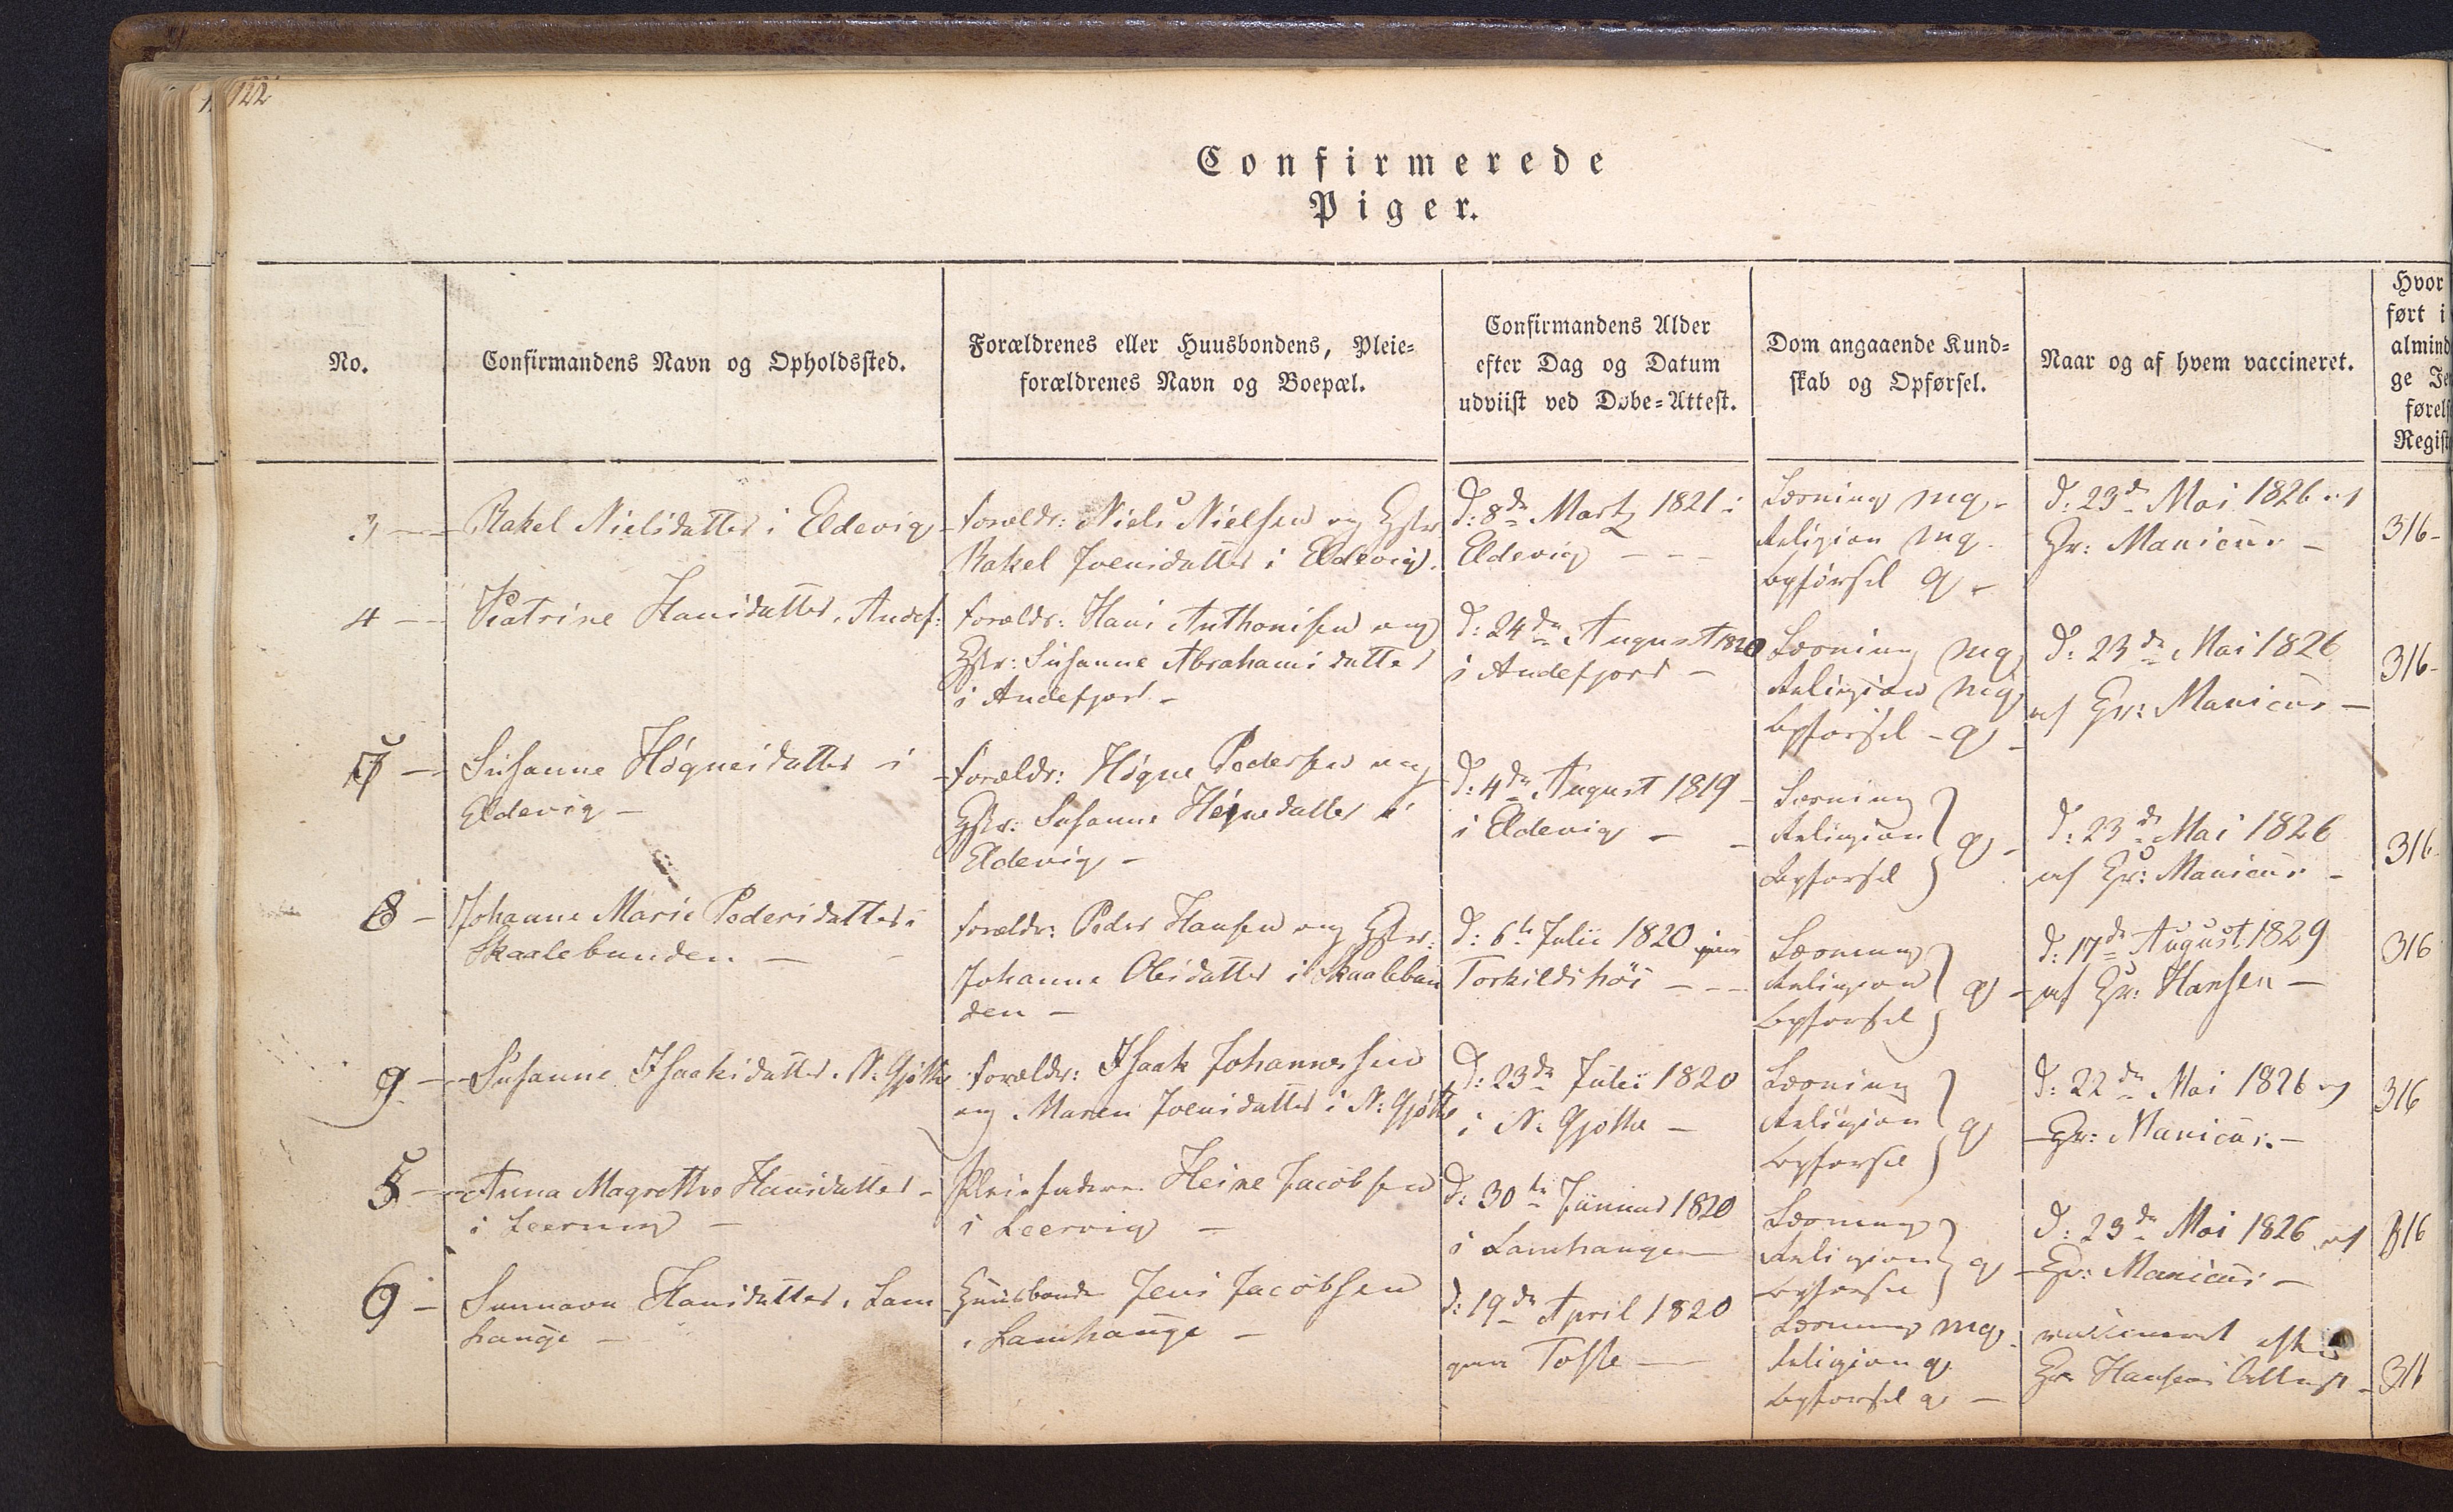 122
Confirmerede
Piger.
No.
Confirmandens Navn og Opholdssted.
Forældrenes eller Huusbondens, Pleie-
forældrenes Navn og Boepæl.
Confirmandens Alder
efter Dag og Datum
udviist ved Døbe-Attest.
Dom angaaende Kund-
skab og Opførsel.
Naar og af hvem vaccineret.
Hvor
ført i
almind
ge Je
førels
Regist
3 — Rakel Nielsdatter i Eldevig
Forældr: Niels Nielsen og Hstr
Rakel Joensdatter i Eldevig.
D: 8de Martz 1821 i
Eldevig — —
Læsning mg.
Religion mg.
Opførsel g —
d: 23d Mai 1826 af
Hr: Manicus —
316-
4 — Katrine Hansdatter i Andef:
Forældr: Hans Anthonisen og
Hstr: Susanne Abrahamsdatter
i Andefjord —
D: 24de August 1820
i Andefjord —
Læsning mg
Religion mg
Opførsel - g -
d: 23de Mai 1826
af Hr: Manicus —
316-
7 — Susanne Høgnesdatter i
Eldevig —
Forældr: Høgne Pedersen og
Hstr: Susanne Heinesdatter i
Eldevig —
D: 4de August 1819
i Eldevig —
Læsning
Religion
Opførsel } g -
d: 23de Mai 1826
af Hr: Manicus —
316
8 — Johanne Marie Pedersdatter i
Skaalebunden —
Forældr: Peder Hansen og Hstr:
Johanne Olesdatter i Skaalebun
den —
D: 6te Julii 1820 paa
Torkildshøi — —
Læsning
Religion
Opførsel } g -
d: 17de August 1829
af Hr: Hansen —
316
9 — Susanne Isaaksdatter i N: Gjøthe
Forældr: Isaak Johannesen
og Maren Joensdatter i N: Gjøthe
D: 23de Julii 1820
i N: Gjøthe —
Læsning
Religion
Opførsel } g
d: 22de Mai 1826 af
Hr: Manicus. —
316
5 — Anna Magrethe Hansdatter
i Leervig —
Pleiefader Heine Jacobsen
i Leervig —
D: 30te Januar 1820
i Lamhauge —
Læsning
Religion
Opførsel } g
d: 23de Mai 1826 af
Hr: Manicus —
316
6 — Sunnava Hansdatter i Lam
hauge —
Huusbonde Jens Jacobsen
i Lamhauge —
d: 19de April 1820
paa Tofte —
Læsning mg
Religion g
Opførsel g —
vaccineret efter
Hr Hansens Attest —
316